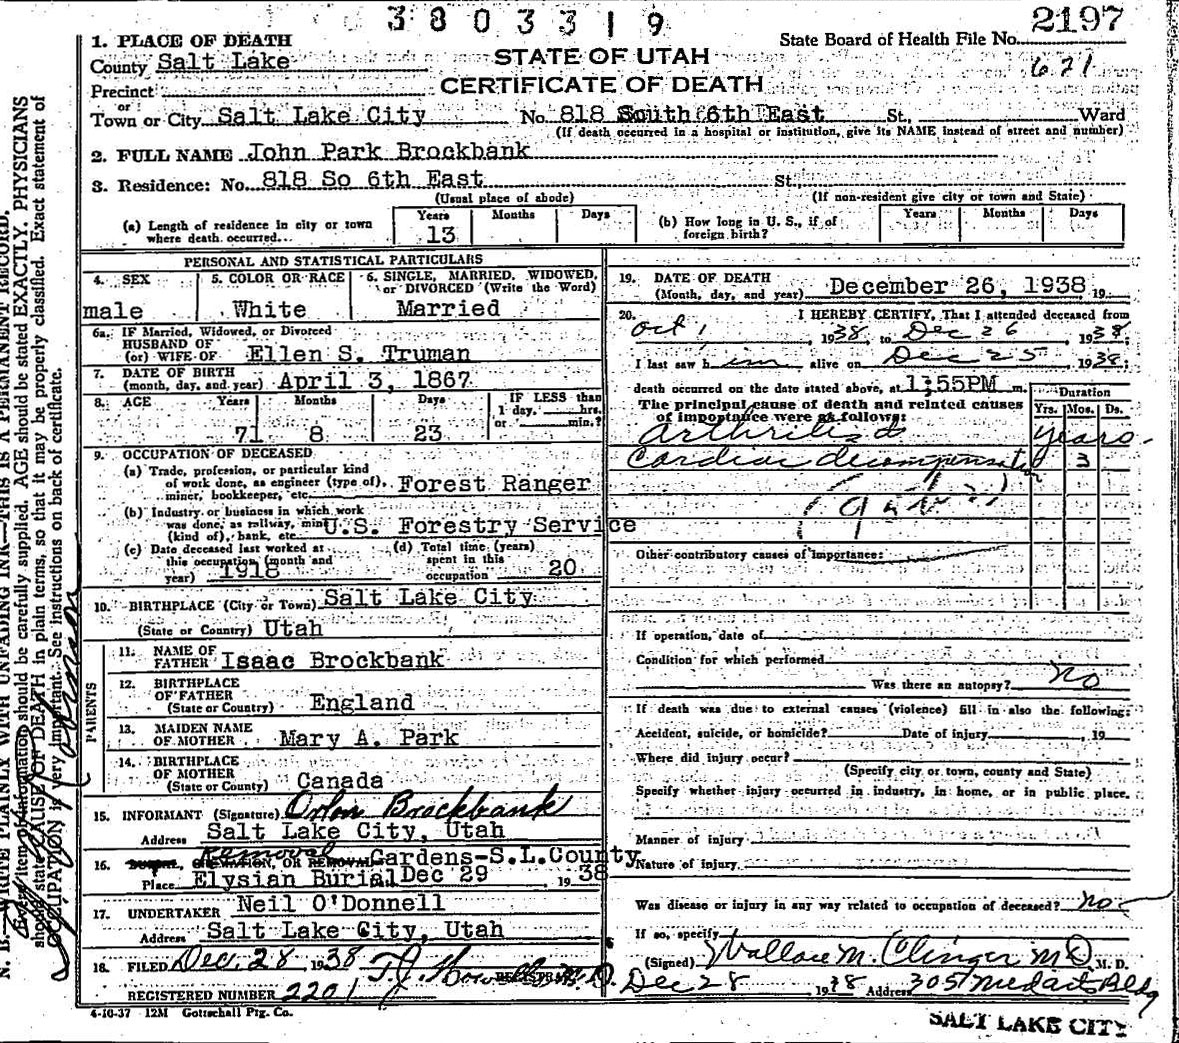 3803319
2197
State Board of Health File No.
621
1. PLACE OF DEATH
STATE OF UTAH
County Salt Lake
CERTIFICATE OF DEATH
Precinct
or
Town or City Salt Lake City No. 818 South 6th East St., Ward
(If death occurred in a hospital or institution, give its NAME instead of street and number)
2. FULL NAME John Park Brockbank
3. Residence: No. 818 So 6th East St.
(Usual place of abode) (If non-resident give city or town and State)
(a) Length of residence in city or town where death occurred... Years 13 Months Days
(b) How long in U. S., if of foreign birth? Years Months Days
PERSONAL AND STATISTICAL PARTICULARS
4. SEX male
5. COLOR OR RACE White
6. SINGLE, MARRIED, WIDOWED, or DIVORCED (Write the Word) Married
6a. IF Married, Widowed, or Divorced
HUSBAND OF
(or) WIFE OF Ellen S. Truman
7. DATE OF BIRTH
(month, day, and year) April 3, 1867
8. AGE Years 71 Months 8 Days 23
IF LESS than
1 day, hrs.
or min.?
9. OCCUPATION OF DECEASED
(a) Trade, profession, or particular kind
of work done, as engineer (type of),
miner, bookkeeper, etc. Forest Ranger
(b) Industry or business in which work
was done, as railway, mine
(kind of), bank, etc. U.S. Forestry Service
(c) Date deceased last worked at
this occupation (month and
year) 1918
(d) Total time (years)
spent in this
occupation 20
10. BIRTHPLACE (City or Town) Salt Lake City
(State or Country) Utah
PARENTS
11. NAME OF
FATHER Isaac Brockbank
12. BIRTHPLACE
OF FATHER
(State or Country) England
13. MAIDEN NAME
OF MOTHER Mary A. Park
14. BIRTHPLACE
OF MOTHER
(State or Country) Canada
15. INFORMANT (Signature) Orlon Brockbank
Address Salt Lake City, Utah
16. BURIAL, CREMATION, OR REMOVAL Removal Gardens-S.L.County
Place Elysian Burial Dec 29, 1938
17. UNDERTAKER Neil O'Donnell
Address Salt Lake City, Utah
18. FILED Dec. 28 1938 T.J. Howells M.D. REGISTRAR
REGISTERED NUMBER 2201
4-10-37 12M Gottschall Ptg. Co.
19. DATE OF DEATH
(Month, day, and year) December 26, 1938, 19
20. I HEREBY CERTIFY, That I attended deceased from
Oct 1, 1938, to Dec 26, 1938.
I last saw him alive on Dec 25 1938;
death occurred on the date stated above, at 1:55PM m.
The principal cause of death and related causes
of importance were as follows:
Duration
Yrs. Mos. Ds.
Arthritis d years.
Cardiac decompensation 3
Other contributory causes of importance:
If operation, date of
Condition for which performed
Was there an autopsy? No
If death was due to external causes (violence) fill in also the following:
Accident, suicide, or homicide? Date of injury, 19
Where did injury occur?
(Specify city or town, county and State)
Specify whether injury occurred in industry, in home, or in public place.
Manner of injury
Nature of injury
Was disease or injury in any way related to occupation of deceased? no
If so, specify
(Signed) Wallace M. Clinger M D M. D.
Dec 28 1938 Address 305 Med arts Bldg
SALT LAKE CITY
N. B.—WRITE PLAINLY WITH UNFADING INK—THIS IS A PERMANENT RECORD.
Every item of information should be carefully supplied. AGE should be stated EXACTLY. PHYSICIANS
should state CAUSE OF DEATH in plain terms, so that it may be properly classified. Exact statement of
OCCUPATION is very important. See instructions on back of certificate.